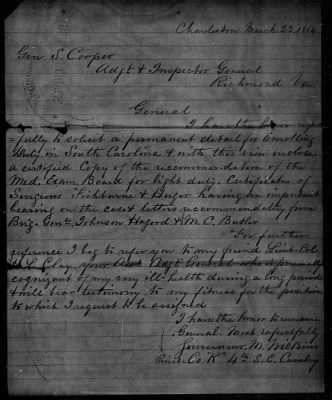 Charleston March 23, 1864
Gen S. Cooper
Adjt & Inspector General
Richmond Va
General
I have the honor respect
=fully to solicit a permanent detail for Enrolling
duty in South Carolina & with this view enclose
a certified Copy of the recommendation of the
Med. Exam. Board for light duty. Certificates of
Surgeons Fishburne & Huger having an important
bearing on the case & letters recommendatory from
Brig. Genls Johnson Hagood & M. C. Butler
For further
reference I beg to refer you to my friend Lieut. Col.
H. L. Clay, your Asst Adjt General who is personally
cognizant of my very ill-health during a long period
& will bear testimony to my fitness for the position
to which I request to be assigned
I have the honor to remain
General. Most respectfully
Gouverneur M. Wilkins
Privt. Co "K" 4th S. C. Cavalry